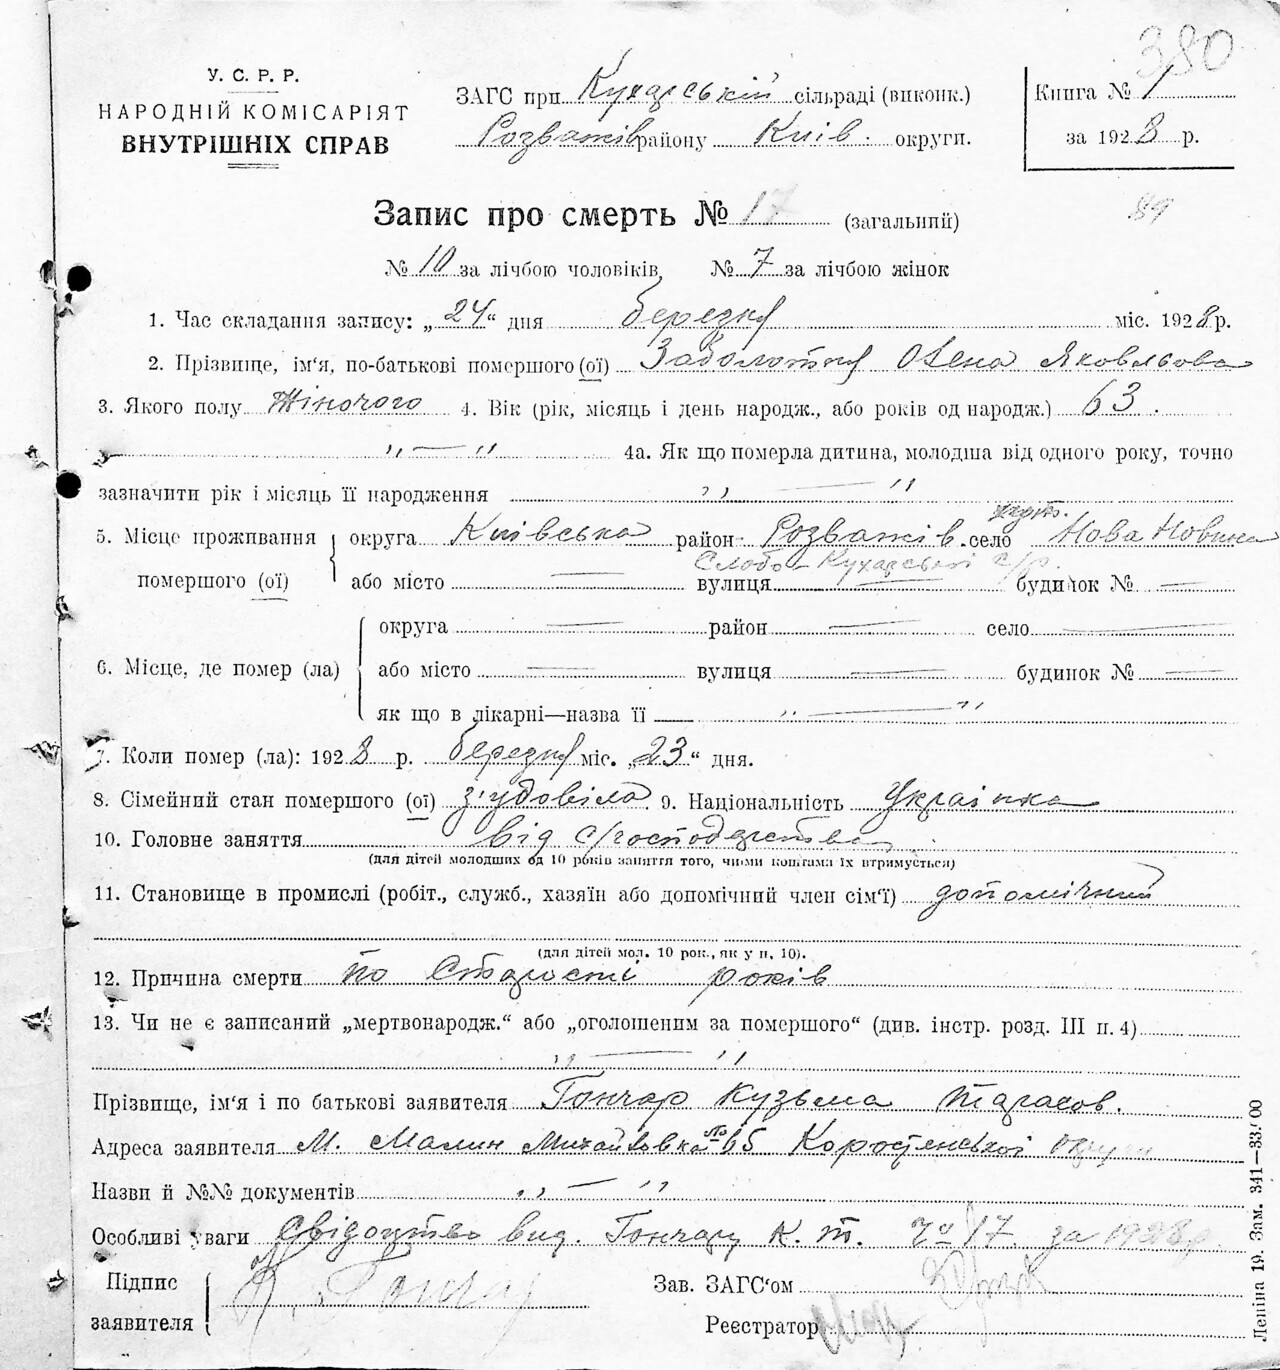 380
У. С. Р. Р.
НАРОДНІЙ КОМІСАРІЯТ
ВНУТРІШНІХ СПРАВ
ЗАГС при Кухарській сільраді (виконк.)
Розважів району Київ. округи.
Книга № 1
за 1928 р.
Запис про смерть № 17 (загальний)
89
№ 10 за лічбою чоловіків, № 7 за лічбою жінок
1. Час складання запису: „24“ дня березня міс. 1928 р.
2. Прізвище, ім‘я, по-батькові помершого (ої) Заболотня Олена Яковльова
3. Якого полу Жіночого 4. Вік (рік, місяць і день народж., або років од народж.) 63.
„ — “ 4а. Як що померла дитина, молодша від одного року, точно
зазначити рік і місяць її народження „ — “
5. Місце проживання помершого (ої) округа Київська район Розважів. село Нова Новина
Слобо- Кухарської с/р.
або місто — вулиця — будинок № —
6. Місце, де помер (ла) округа — район — село —
або місто — вулиця — будинок № —
як що в лікарні—назва її „ — “
7. Коли помер (ла): 1928 р. березня міс. „23“ дня.
8. Сімейний стан помершого (ої) з'удовіла 9. Національність Українка
10. Головне заняття від с/господарства
(для дітей молодших од 10 років заняття того, чиїми коштами їх втримується)
11. Становище в промислі (робіт., служб., хазяїн або допомічний член сім‘ї) допомічний
(для дітей мол. 10 рок., як у п. 10).
12. Причина смерти по Старості років
13. Чи не є записаний „мертвонародж.“ або „оголошеним за помершого“ (див. інстр. розд. III п. 4)
„ — “
Прізвище, ім‘я і по батькові заявителя Гончар Кузьма Тарасов.
Адреса заявителя М. Малин Михайловка № 65 Коростенської округи
Назви й №№ документів „ — “
Особливі уваги Свідоцтво вид. Гончару К. Т. 17 за 1928 р.
Підпис
заявителя К. Гончар
Зав. ЗАГС‘ом
Реєстратор
Леніна 19. Зам. 341—33.000